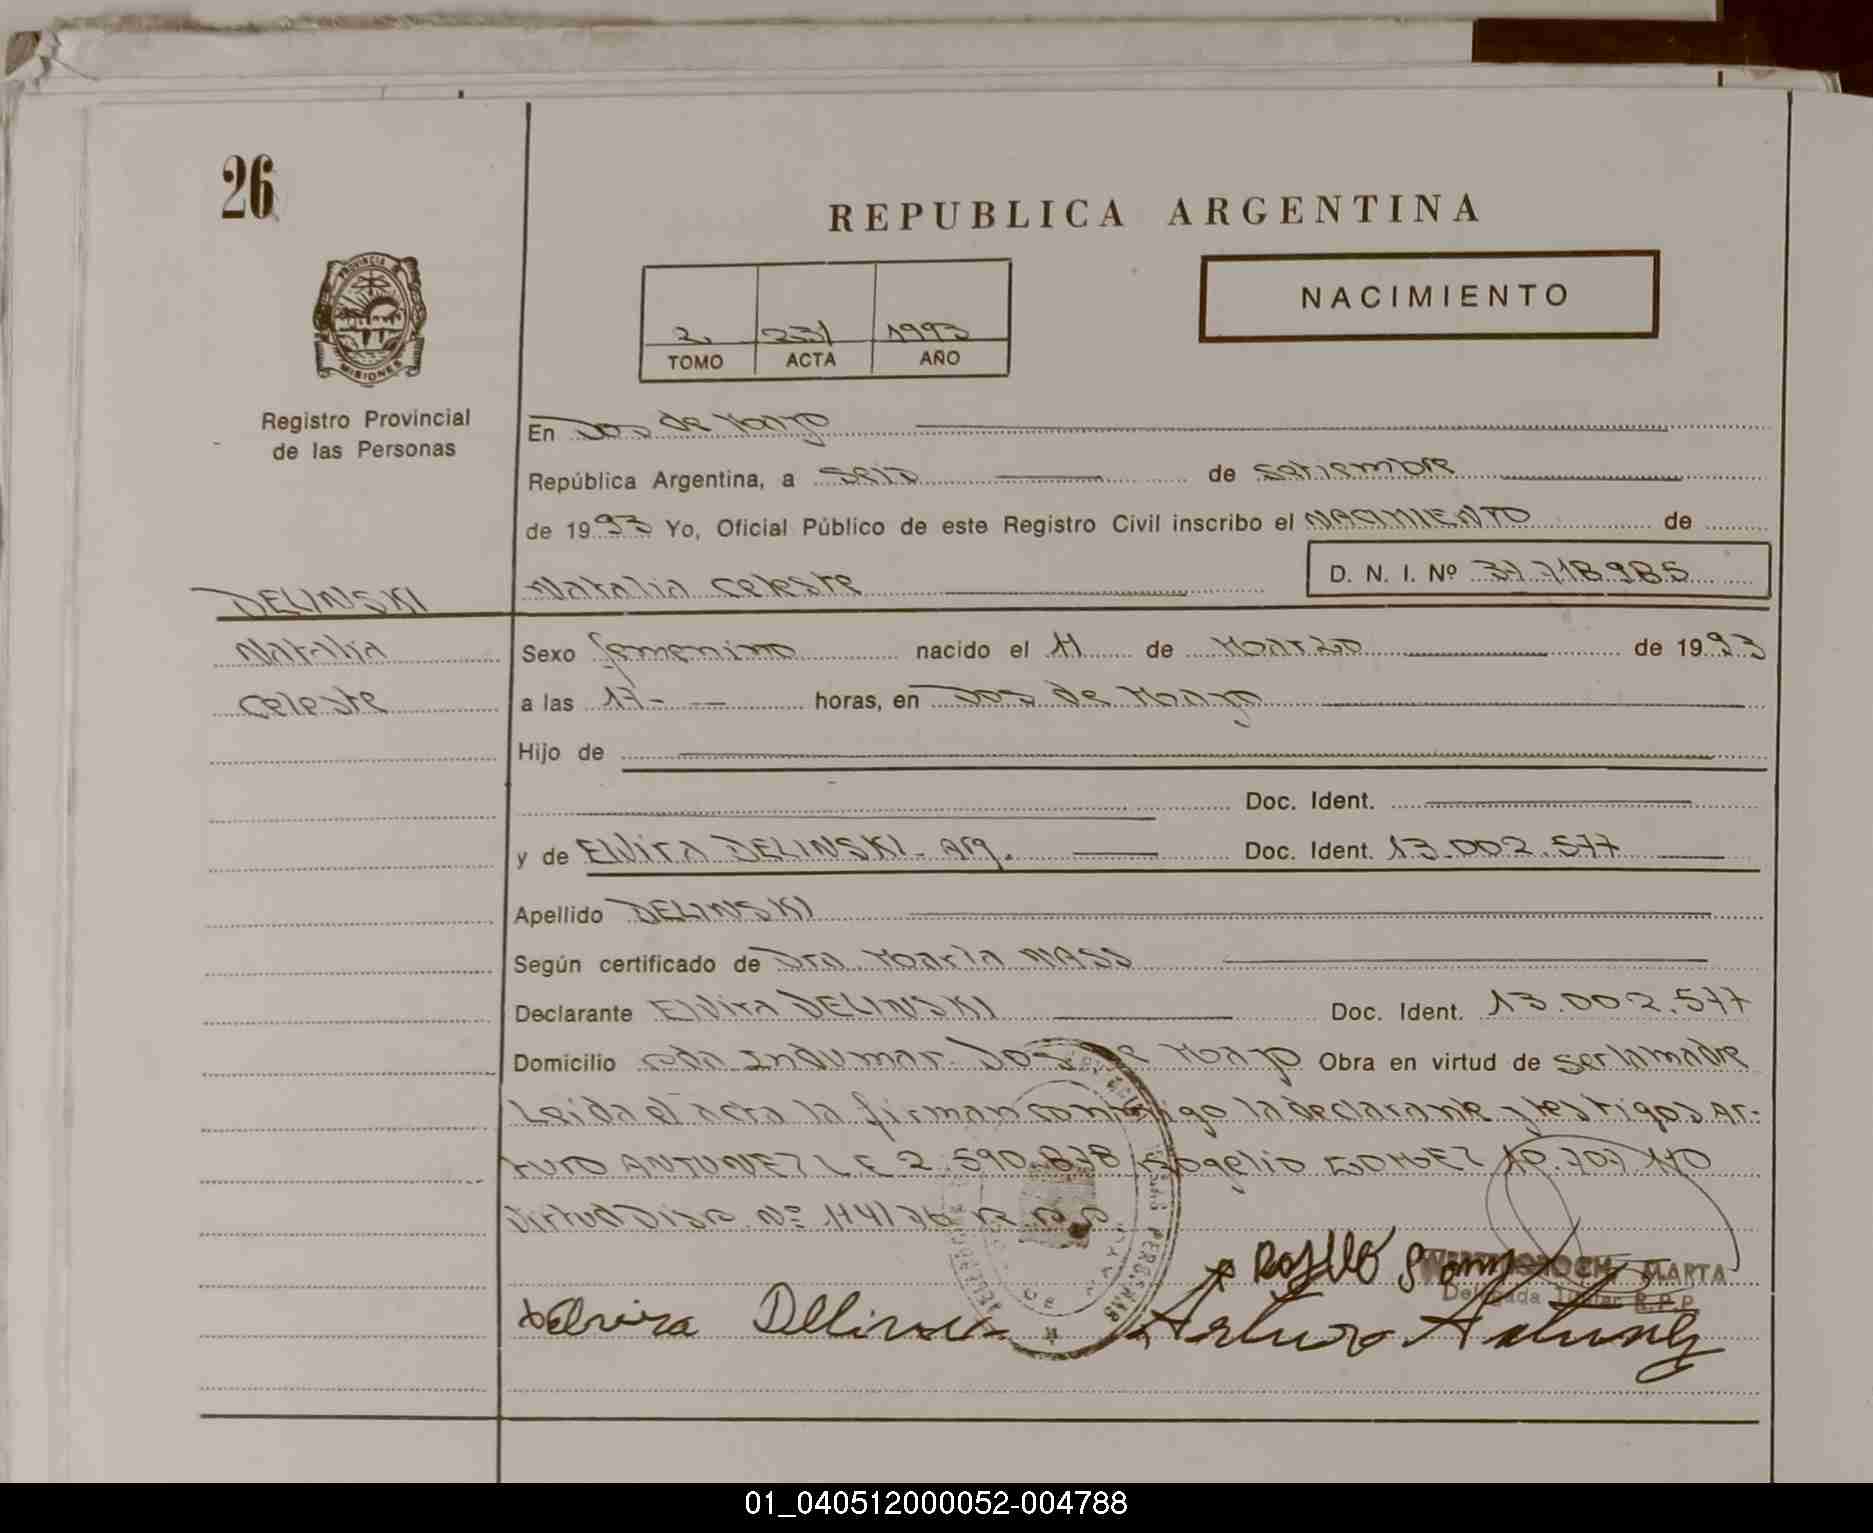 26
REPUBLICA ARGENTINA
PROVINCIA
MISIONES
NACIMIENTO
2 231 1993
TOMO ACTA AÑO
Registro Provincial
de las Personas
En Dos de Mayo
República Argentina, a seis de setiembre
de 1993 Yo, Oficial Público de este Registro Civil inscribo el NACIMIENTO de
DELINSKI
Natalia Celeste D. N. I. Nº 37.718.985
Natalia
Sexo femenino nacido el 11 de Marzo de 1993
Celeste
a las 17- horas, en Dos de Mayo
Hijo de
Doc. Ident.
y de Elvira DELINSKI- Arg. Doc. Ident. 13.002.577
Apellido DELINSKI
Según certificado de Dra. Maria MASS
Declarante Elvira DELINSKI Doc. Ident. 13.002.577
Domicilio Indumar- Dos de Mayo Obra en virtud de ser la madre
Leida el acta la firman conmigo la declarante y testigos Ar-
turo ANTUNEZ L.E. 2.590.838 Rogelio GOMEZ 10.707.110
Virtud Disp. Nº
Rogelio MARTA
Delegada Titular R.P.P.
Elvira Delinski Arturo Antunez
01_040512000052-004788